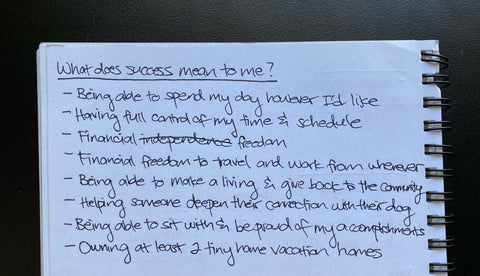 What does success mean to me?
- Being able to spend my day however I'd like
- Having full control of my time & schedule
- Financial independence freedom
- Financial freedom to travel and work from wherever
- Being able to make a living & give back to the community
- Helping someone deepen their connection with their dog
- Being able to sit with & be proud of my accomplishments
- Owning at least 2 tiny home vacation homes